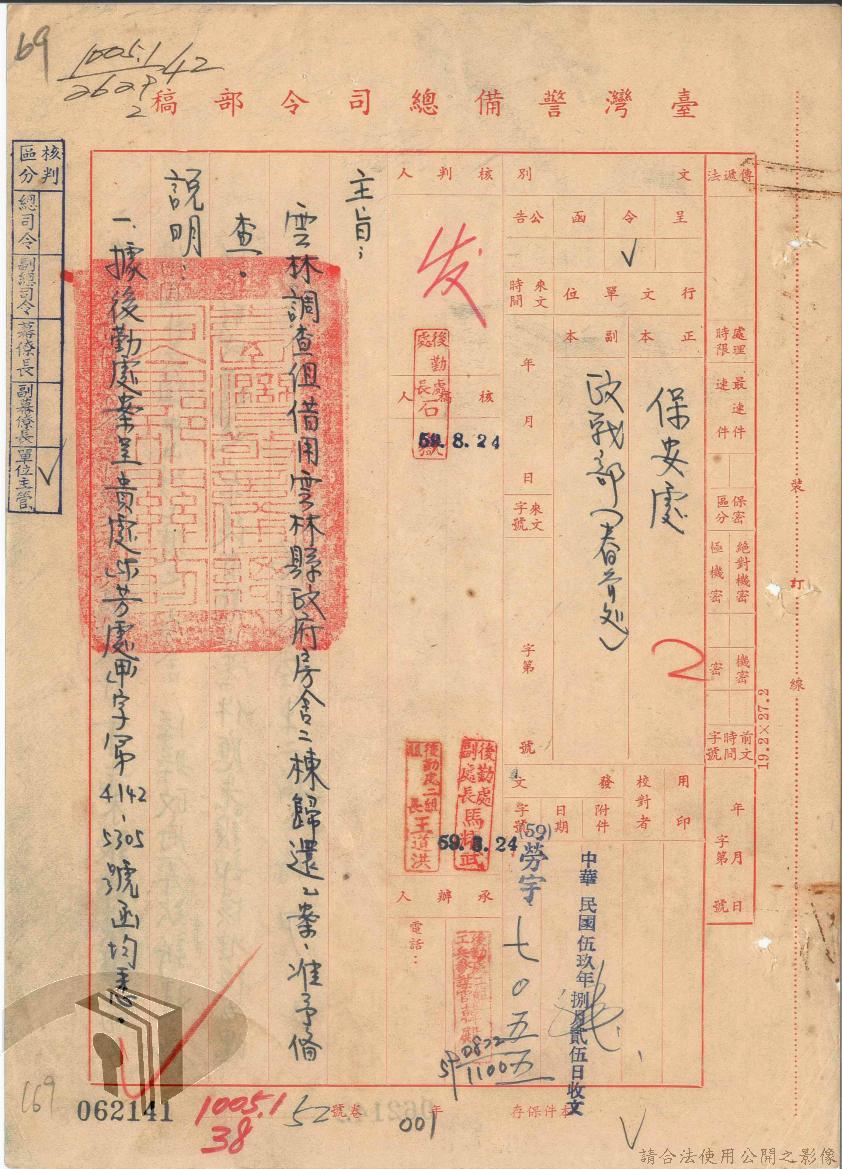 69
1005.1
2629
42
2
臺灣警備總司令部稿
傳遞法
處理時限
最速件
速件
保密區分
絕對機密
極機密
機密
密
前文時間字號
年月日
字第號
文別
呈
令
函
公告
行文單位
正本
副本
保安處
政戰部
來文時間
年月日
來文字號
字第號
用印
校對者
發文
附件
日期
字號
(59)勞宇七〇五五
中華民國伍玖年捌月貳伍日收文
核判人
发
核稿人
後勤處處長石
59.8.24
後勤處副處長馬輝武
後勤處二組組長王道洪
59.8.24
承辦人
電話:
0822
1100
主旨:
雲林調查組借用雲林縣政府房舍二棟歸還乙案,准予備
查。
說明:
一、據後勤處案呈貴處
字第4142、5305號函均悉。
核判區分
總司令
副總司令
幕僚長
副幕僚長
單位主管
裝
訂
線
19.2×27.2
本件保存
年
卷號
52
001
1005.1
38
062141
169
請合法使用公開之影像